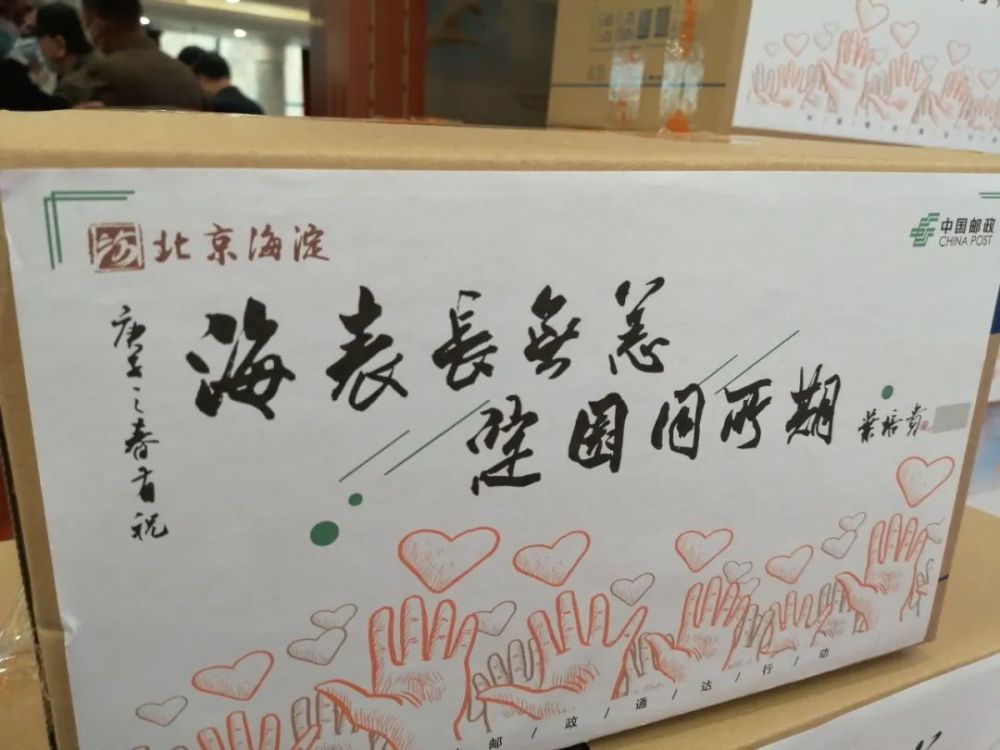 北京海淀
中国邮政
CHINA POST
海表長無恙
園同所期
庚子之春 祝
葉培貴
邮/政/通/达/行/动